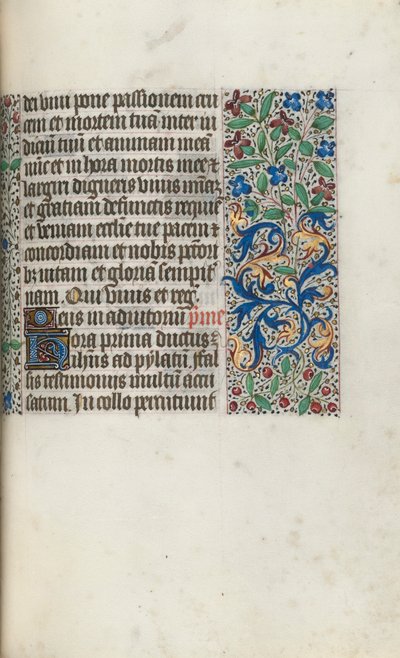 dei vivi pone passionem cru
cem et mortem tuā inter iu
diciū tuū et animam mea
nūc et in hora mortis mee et
largiri digneris vivis mīaʒ
et gratiam defunctis requiē
et veniam ecclie tue pacem et
concordiam et nobis pctori
bʒ vitam et gloriā sempit
nam. Qui vivis et reg.
Deus in adiutoriū p̄me
Hora prima ductus ē
ihūs ad pylatū. ffal
sis testimonijs multū accu
satum. In collo percutiunt